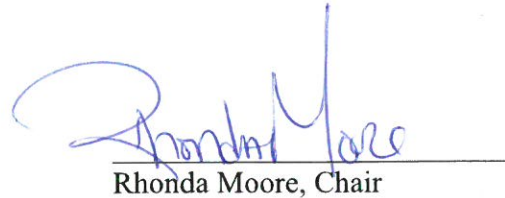 Rhonda Moore
Rhonda Moore, Chair